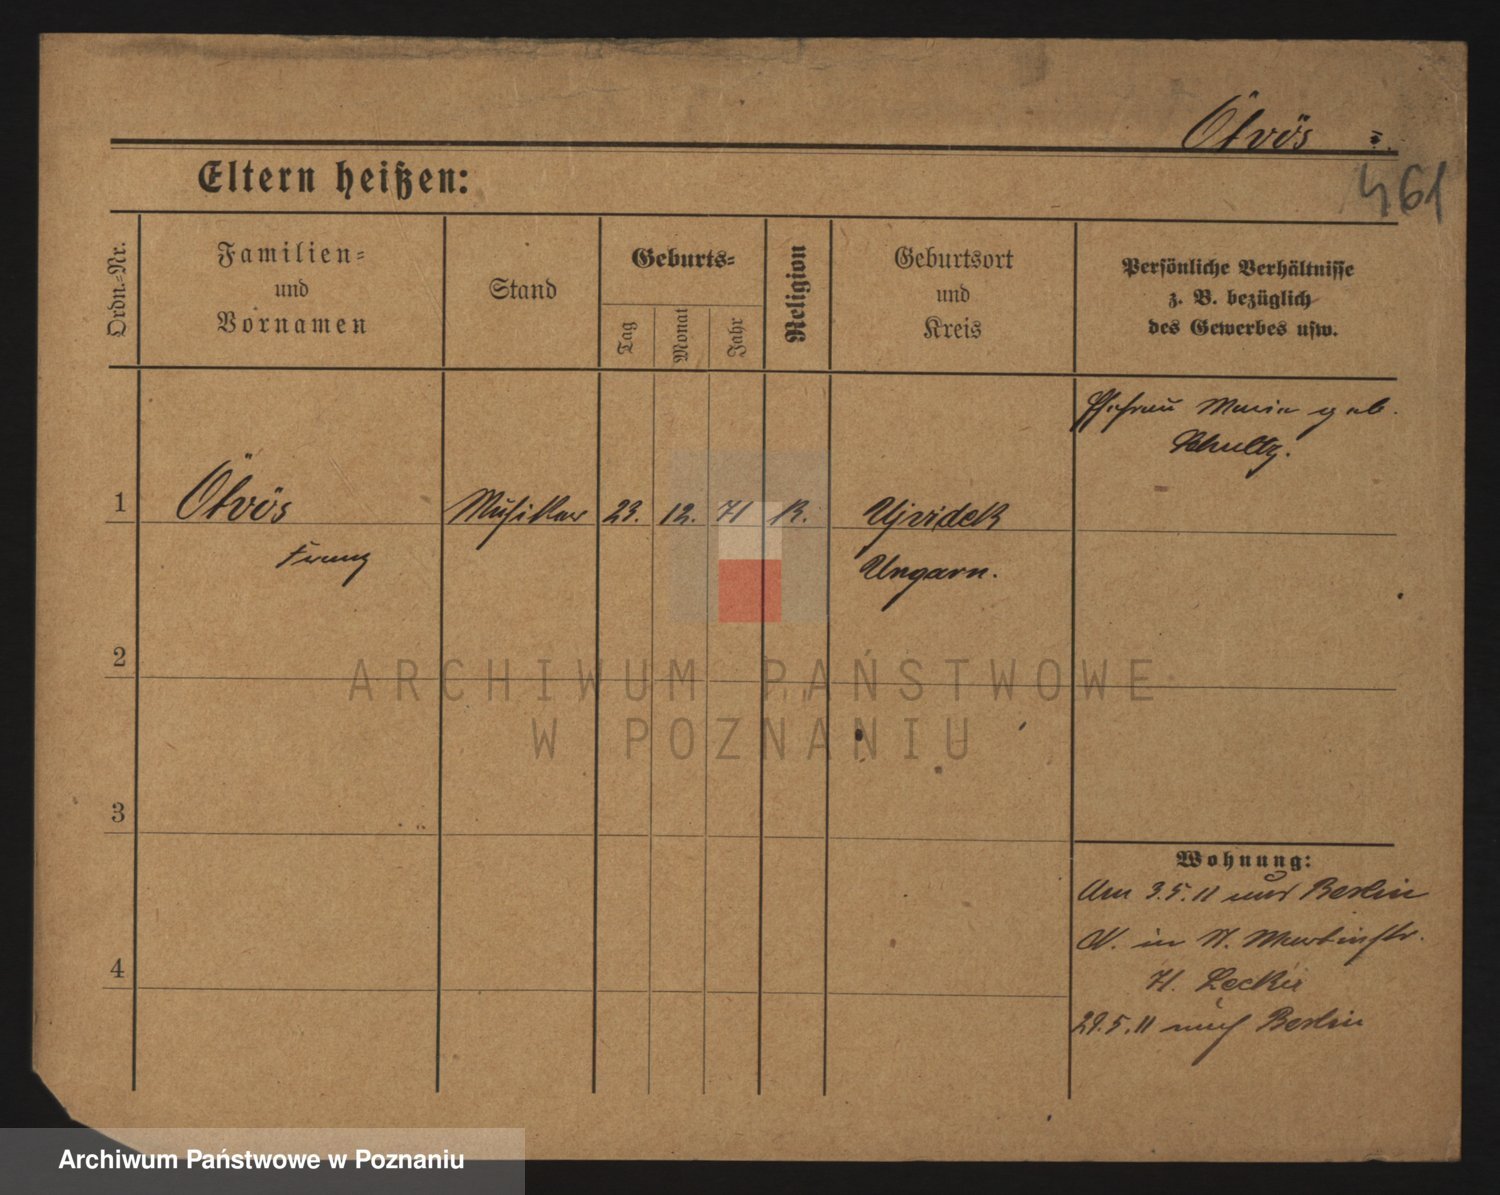 Ötvös
461
Eltern heißen:
Ordn.-Nr.
Familien-
und
Vornamen
Stand
Geburts-
Tag
Monat
Jahr
Religion
Geburtsort
und
Kreis
Persönliche Verhältnisse
z. B. bezüglich
des Gewerbes usw.
Ehefrau Maria geb.
Schultz.
1
Ötvös
Musiker
23.
12.
71
K.
Ujvidek
Franz
Ungarn.
2
ARCHIWUM PAŃSTWOWE
W POZNANIU
3
4
Wohnung:
Am 3.5.11 aus Berlin
W. in St. Martinstr.
29.5.11 nach Berlin
Archiwum Państwowe w Poznaniu